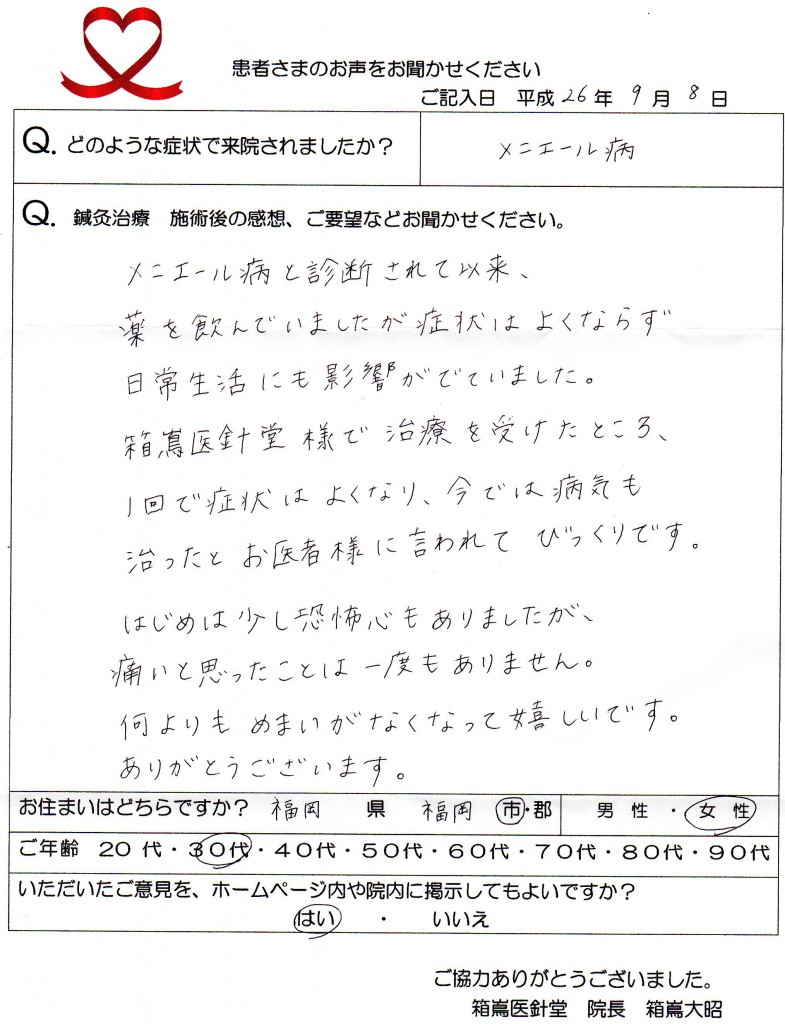 患者さまのお声をお聞かせください
ご記入日 平成 26 年 9 月 8 日
Q. どのような症状で来院されましたか?
メニエール病
Q. 鍼灸治療 施術後の感想、ご要望などお聞かせください。
メニエール病と診断されて以来、
薬を飲んでいましたが症状はよくならず
日常生活にも影響がでていました。
箱嶌医針堂様で治療を受けたところ、
1回で症状はよくなり、今では病気も
治ったとお医者様に言われてびっくりです。
はじめは少し恐怖心もありましたが、
痛いと思ったことは一度もありません。
何よりもめまいがなくなって嬉しいです。
ありがとうございます。
お住まいはどちらですか? 福岡 県 福岡 市・郡 男性・女性
ご年齢 20代・30代・40代・50代・60代・70代・80代・90代
いただいたご意見を、ホームページ内や院内に掲示してもよいですか?
はい ・ いいえ
ご協力ありがとうございました。
箱嶌医針堂 院長 箱嶌大昭